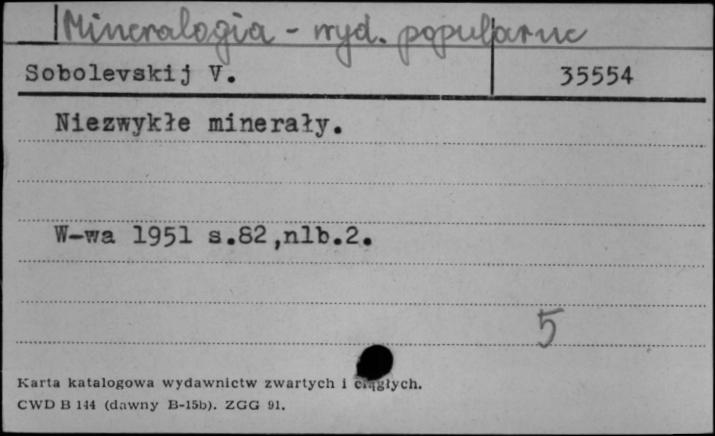 Mineralogia - wyd. popularne
Sobolevskij V. 35554
Niezwykłe minerały.
W-wa 1951 s.82,nlb.2.
5
Karta katalogowa wydawnictw zwartych i ciągłych.
CWD B 144 (dawny B-15b). ZGG 91.